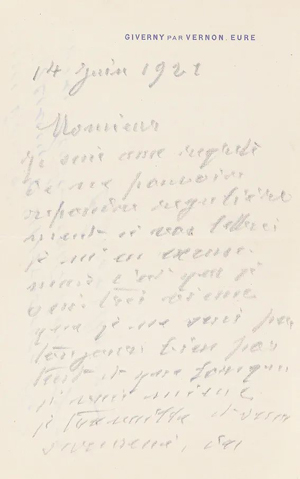 GIVERNY PAR VERNON. EURE
14 juin 1921
Monsieur
je suis aux regrets
de ne pouvoir
repondre regulière
ment à vos lettres
je m'en excuse
mais c'est que je
suis très
que je ne suis pas
toujours bien por
tant et que lorsque
je vais mieux
je travaille et